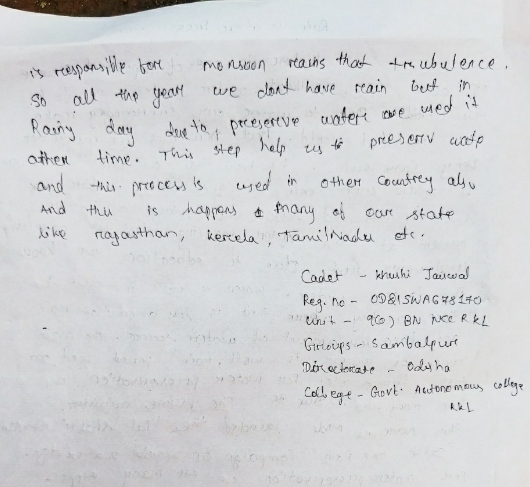 is responsible fore monsoon reains that treubulence.
So all the year we dont have reain but in
Rainy day due to, preeserve watere are used it
other time. This step help us to preeserv watp
and this process is used in other Countrey also
And thii is happens many of oure state
like rajasthan, kereela, TamilNadu etc.
Cadet - Khushi Jaiswal
Reg. no - OD21SWAG78170
Unit - 9(O) BN NCC RKL
Girloups - Sambalpure
Direectorate - Odisha
College - Govt. Autonomous college
RKL